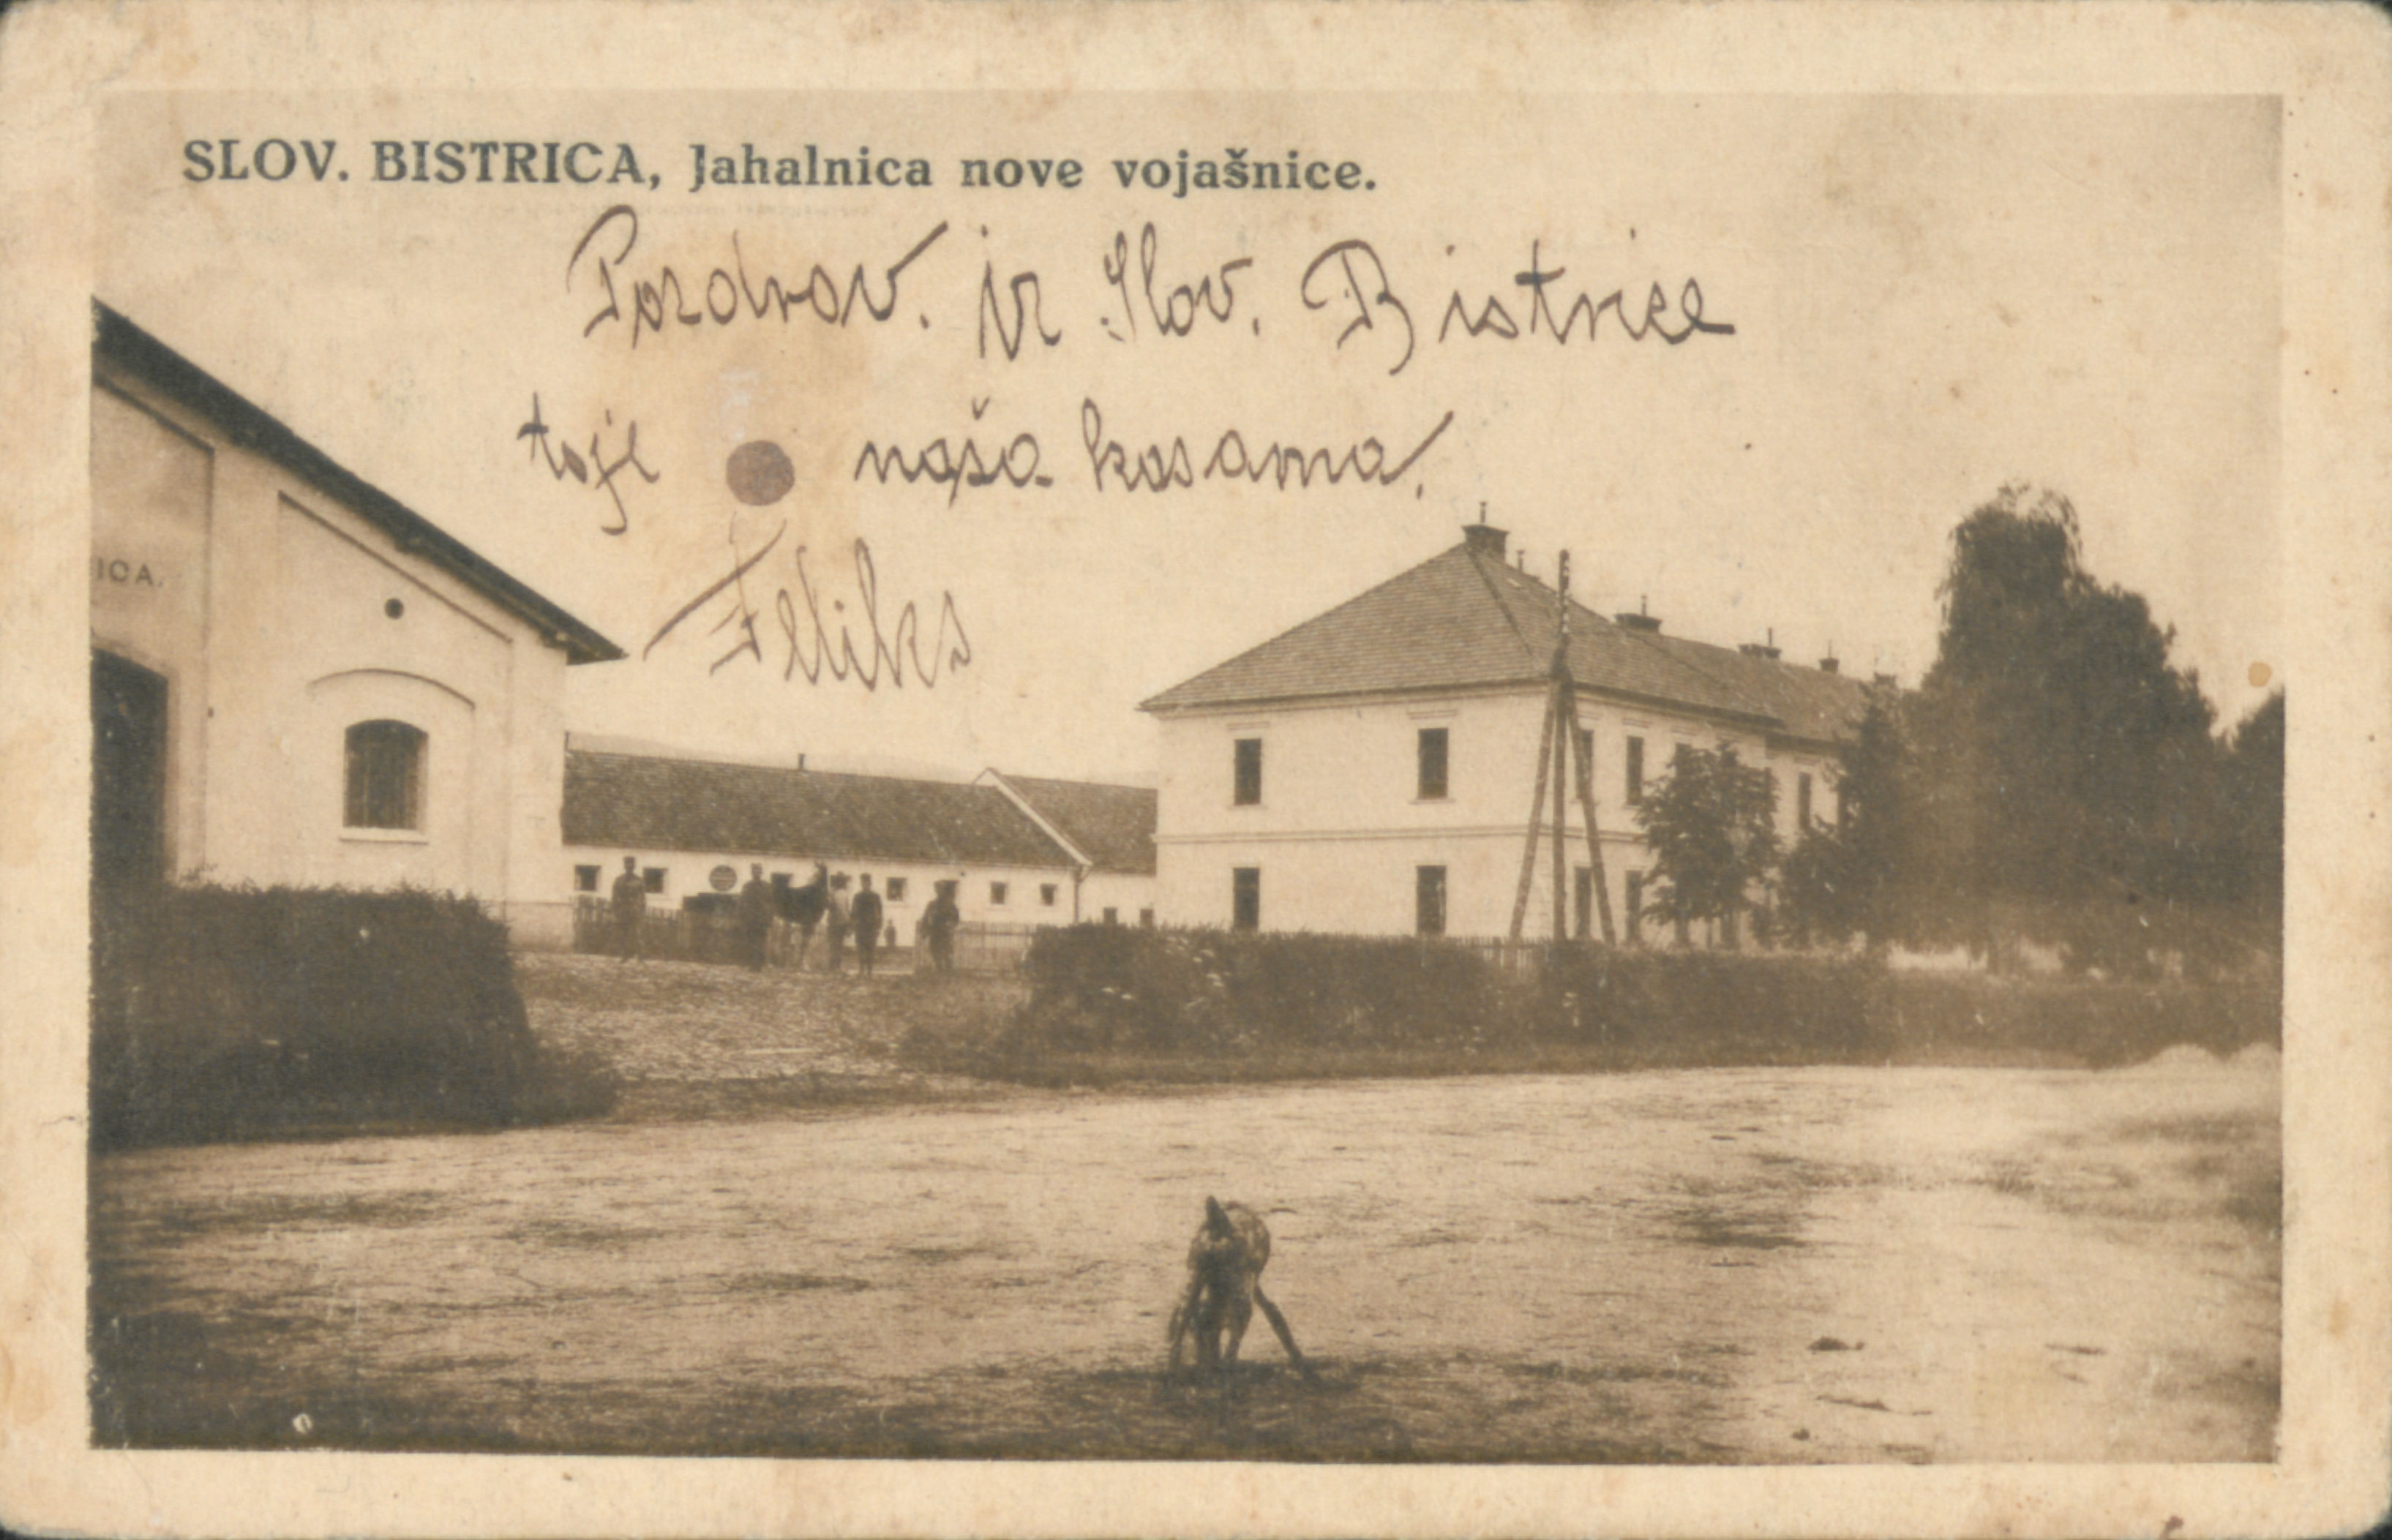 SLOV. BISTRICA, Jahalnica nove vojašnice.
Pozdrav. iz Slov. Bistrice
toje naša kasarna.
Feliks
ICA.